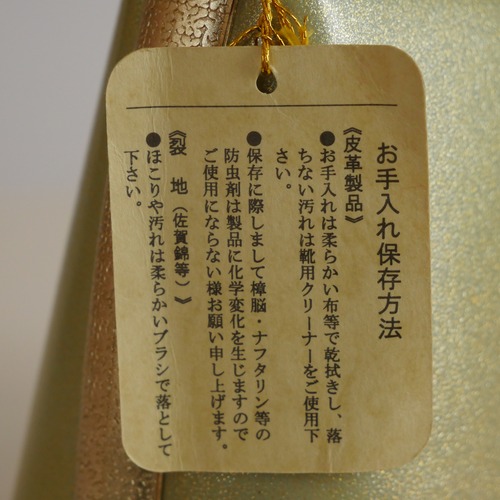 お手入れ保存方法
《皮革製品》
●お手入れは柔らかい布等で乾拭きし、落
ちない汚れは靴用クリーナーをご使用下
さい。
●保存に際しまして樟脳・ナフタリン等の
防虫剤は製品に化学変化を生じますので
ご使用にならない様お願い申し上げます。
《裂　地（佐賀錦等）》
●ほこりや汚れは柔らかいブラシで落として
下さい。